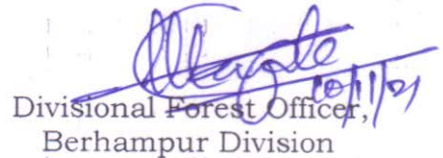 10/11/21
Divisional Forest Officer,
Berhampur Division